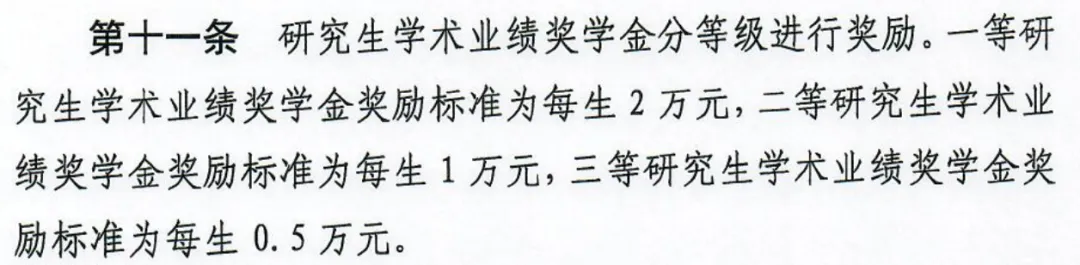 第十一条 研究生学术业绩奖学金分等级进行奖励。一等研
究生学术业绩奖学金奖励标准为每生 2 万元,二等研究生学术业
绩奖学金奖励标准为每生 1 万元,三等研究生学术业绩奖学金奖
励标准为每生 0.5 万元。